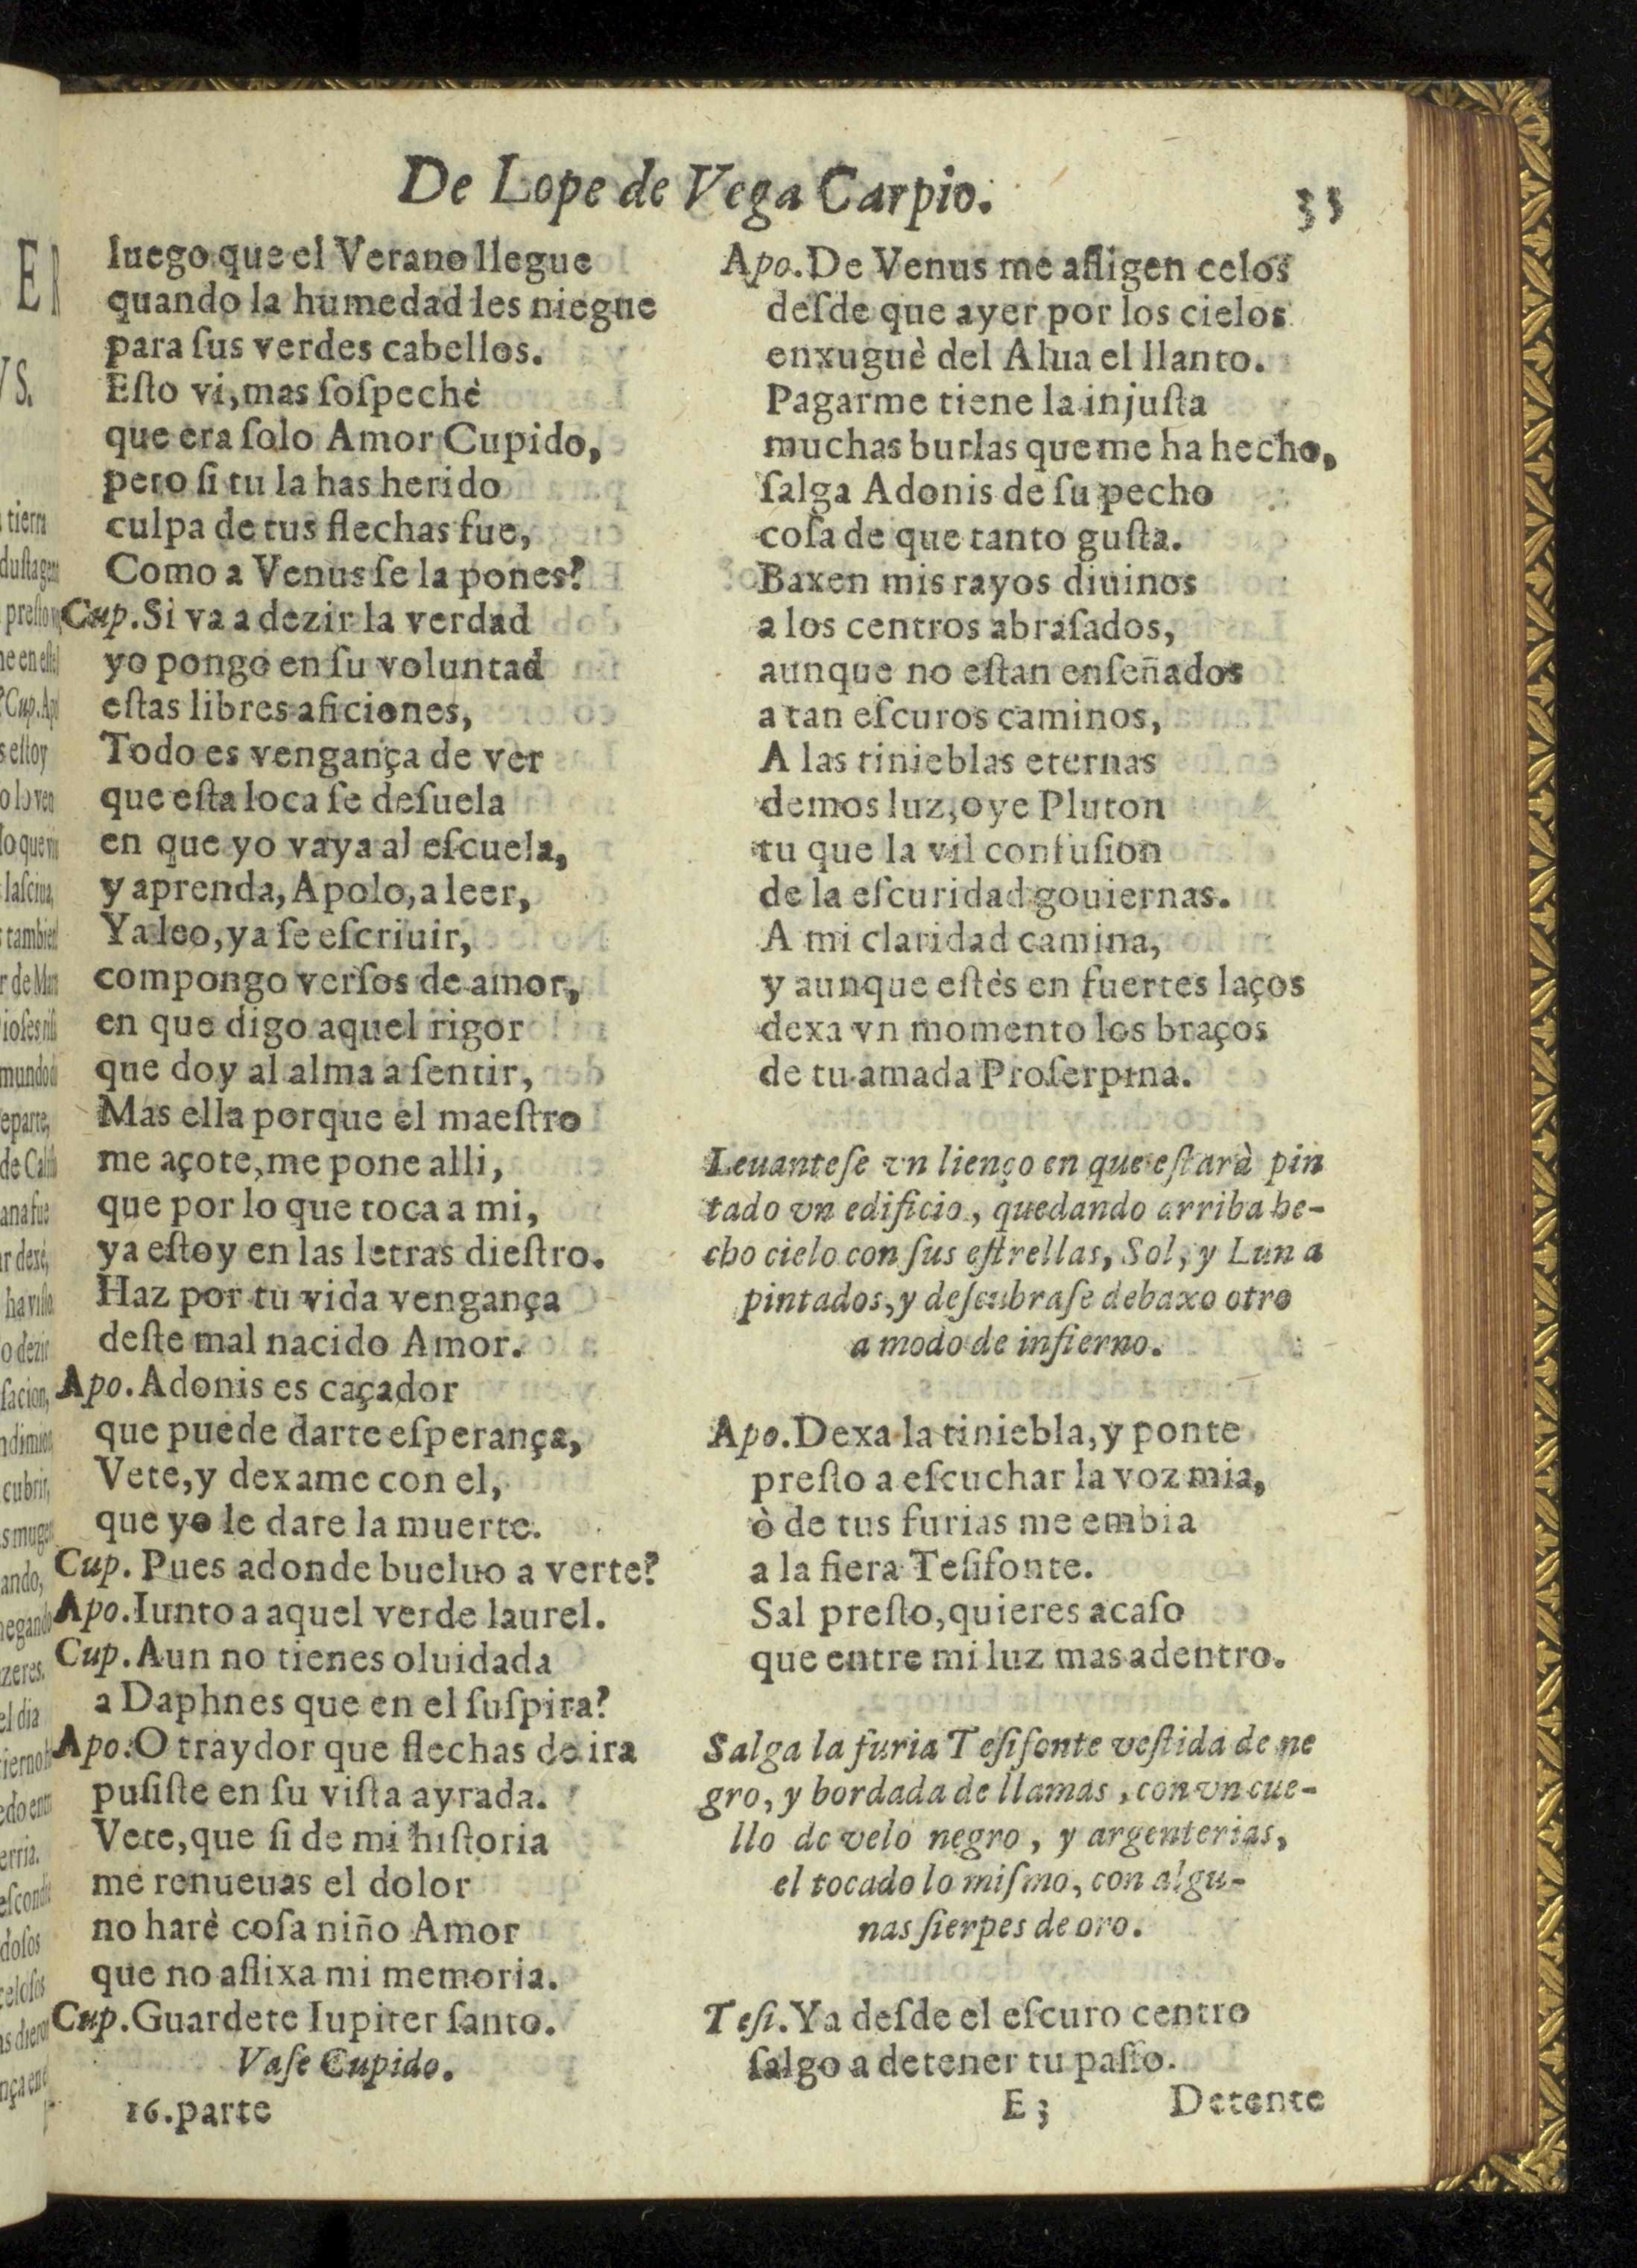 De Lope de Vega Carpio.
33
luego que el Verano llegue
quando la humedad les niegue
para ſus verdes cabellos.
Eſto vi, mas ſoſpechè
que era ſolo Amor Cupido,
pero ſi tu la has herido
culpa de tus flechas fue,
Como a Venus ſe la pones?
Cup. Si va a dezir la verdad
yo pongo en ſu voluntad
eſtas libres aficiones,
Todo es vengança de ver
que eſta loca ſe deſuela
en que yo vaya al eſcuela,
y aprenda, Apolo, a leer,
Ya leo, ya ſe eſcriuir,
compongo verſos de amor,
en que digo aquel rigor
que doy al alma a ſentir,
Mas ella porque el maeſtro
me açote, me pone alli,
que por lo que toca a mi,
ya eſtoy en las letras dieſtro.
Haz por tu vida vengança
deſte mal nacido Amor.
Apo. Adonis es caçador
que puede darte eſperança,
Vete, y dexame con el,
que yo le dare la muerte.
Cup. Pues adonde bueluo a verte?
Apo. Iunto a aquel verde laurel.
Cup. Aun no tienes oluidada
a Daphnes que en el ſuſpira?
Apo. O traydor que flechas de ira
puſiſte en ſu viſta ayrada.
Vete, que ſi de mi hiſtoria
me renueuas el dolor
no harè coſa niño Amor
que no aflixa mi memoria.
Cup. Guardete Iupiter ſanto.
Vaſe Cupido.
16. parte
Apo. De Venus me afligen celos
deſde que ayer por los cielos
enxuguè del Alua el llanto.
Pagarme tiene la injuſta
muchas burlas que me ha hecho,
ſalga Adonis de ſu pecho
coſa de que tanto guſta.
Baxen mis rayos diuinos
a los centros abraſados,
aunque no eſtan enſeñados
a tan eſcuros caminos,
A las tinieblas eternas
demos luz, oye Pluton
tu que la vil confuſion
de la eſcuridad gouiernas.
A mi claridad camina,
y aunque eſtès en fuertes laços
dexa vn momento los braços
de tu amada Proſerpina.
Leuanteſe vn lienço en que eſtarà pin
tado vn edificio, quedando arriba he-
cho cielo con ſus eſtrellas, Sol, y Luna
pintados, y deſcubraſe debaxo otro
a modo de infierno.
Apo. Dexa la tiniebla, y ponte
preſto a eſcuchar la voz mia,
ò de tus furias me embia
a la fiera Teſifonte.
Sal preſto, quieres acaſo
que entre mi luz mas adentro.
Salga la furia Teſifonte veſtida de ne
gro, y bordada de llamas, con vn cue-
llo de velo negro, y argenterias,
el tocado lo miſmo, con algu-
nas ſierpes de oro.
Teſi. Ya deſde el eſcuro centro
ſalgo a detener tu paſſo.
E 3
Detente